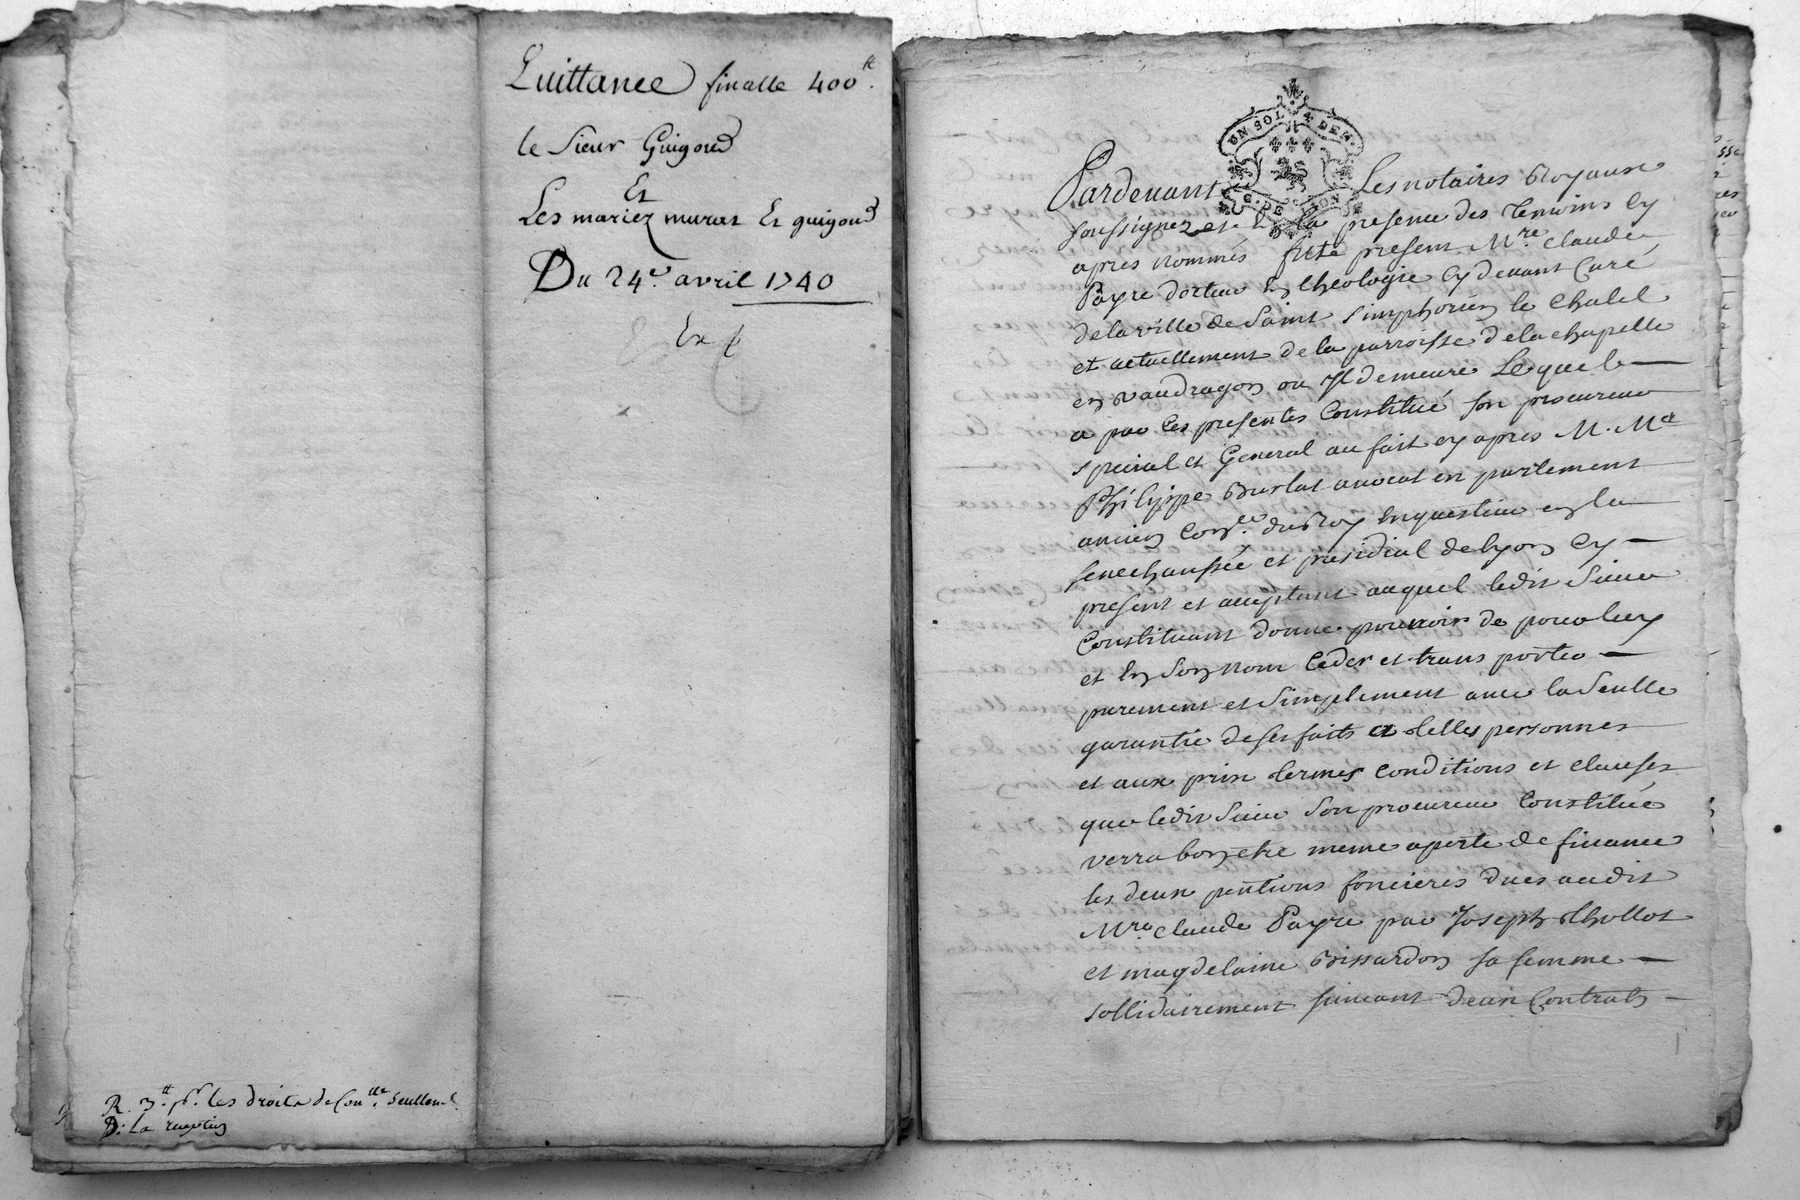 Quittance finalle 400lt.
le Sieur Guigoud
Et
Les mariez murat Et guigoud
Du 24e. avril 1740
Ex
R. 3lt. pr. les droits de Con.lle. Seullem.t.
D: La
UN SOL 4 DEN.
G. DE LYON
Pardevant Les notaires Royaux
soussignez et En la presence des Temoins Cy
apres nommés fut present Mre. Claude
Payre docteur En theologie Cy devant Curé
de la ville de Saint Simphorien le Chatel
et actuellement de la parroisse de la chapelle
en vaudragon ou Il demeure Lequel
a par Ces presentes Constitué son procureur
special et General au fait cy apres M. Me
Philippe Burlat avocat en parlement
ancien Conser. du Roy Enquesteur en la
senechaussée et presidial de lyon Cy
present et acceptant auquel ledit Sieur
Constituant donne pouvoir de pour luy
et En Son nom Ceder et transporter
purement et Simplement avec la Seulle
garantie de ses faits et
personnes
et aux prix termes conditions et clauses
que ledit Sieur Son procureur Constitué
verra bon etre meme a perte de finance
les deux pentions foncieres dues audit
Mre Claude Payre par Joseph thollot
et magdelaine Bissardon sa femme
sollidairement suivant deux Contrats